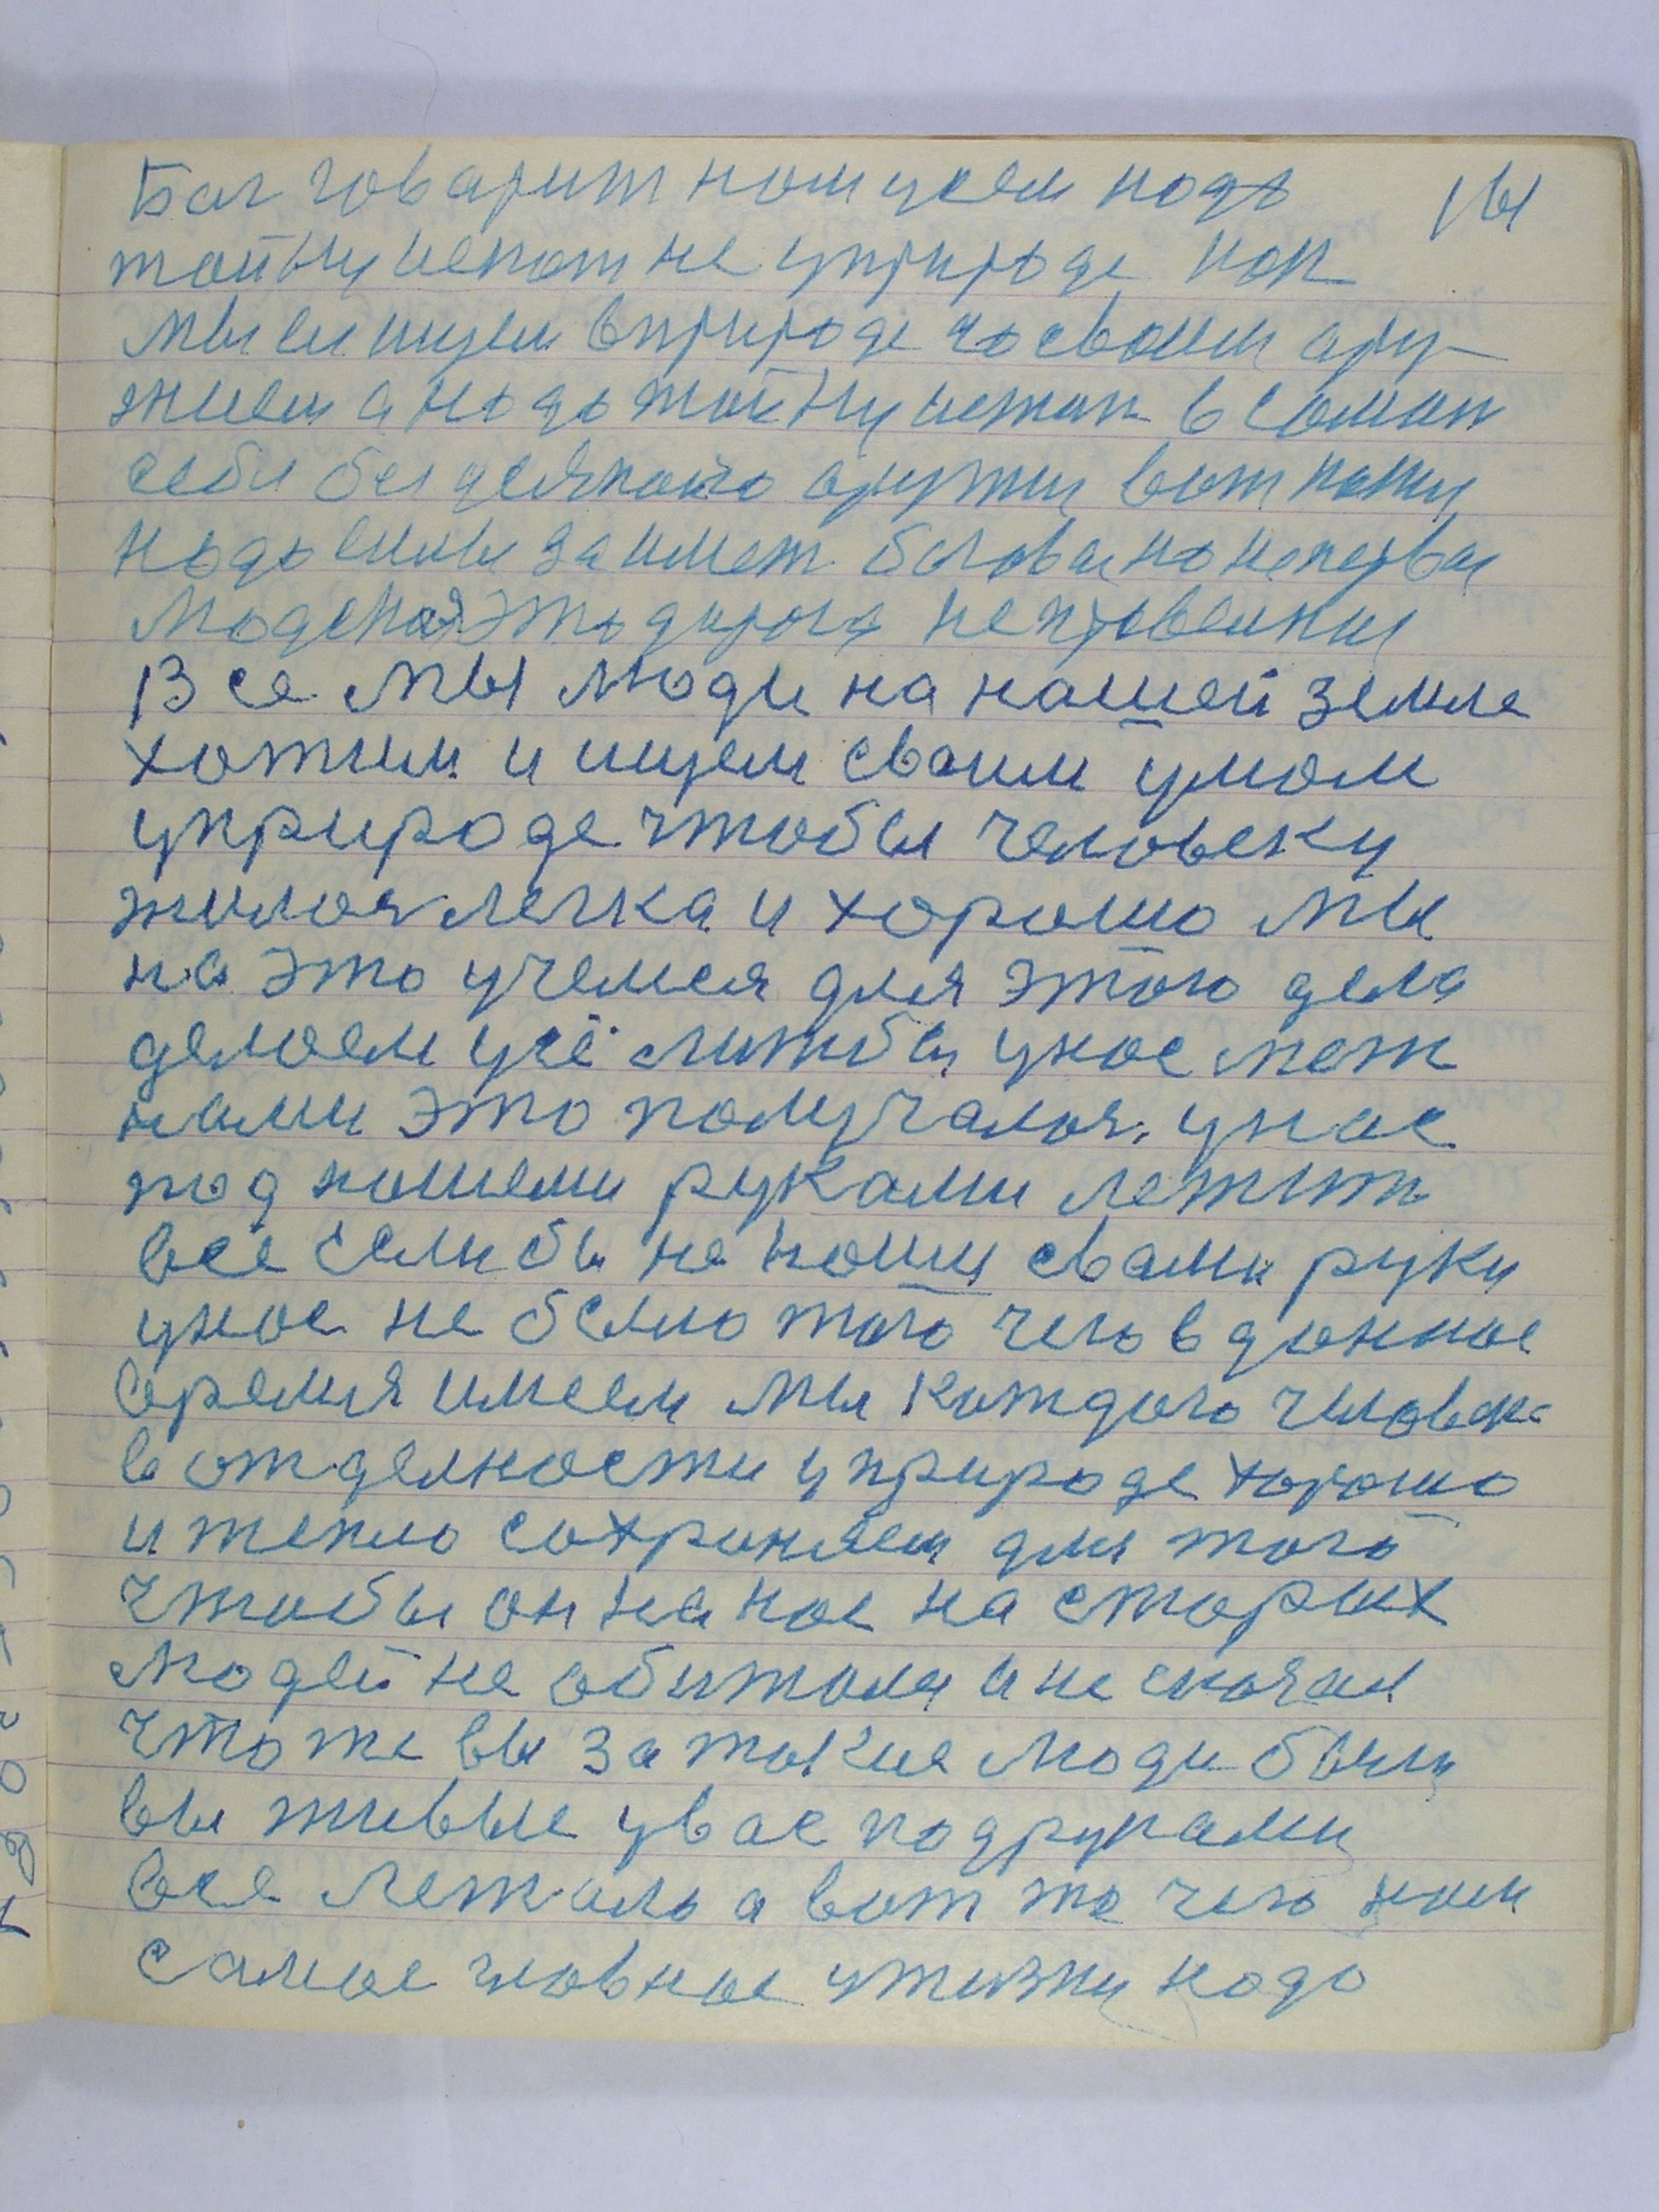 Бог говарит ном усем надо 161
тайну искат не уприроде как
мы ее ищем вприроде со своем ору-
жием а надо тайну искат в самих
себя без усякого оружия вот какии
надо силы
людская это дорога не
Все мы люди на нашей земле
хотим и ищем своим умом
уприроде чтобы человеку
жилося легка и хорошо мы
на это учемся для этого дела
делоем усё литбы унос меж
нами это получалося. унас
под нашеми руками лежит
всё если бы не наши свами руки
унос не было того чего в донное
время имеем мы каждого человек
в отделности уприроде хорошо
и тепло сохроняем для того
чтобы он на нас на старых
людей не обижался и не сказал
что же вы за такие люди были
вы живые увас подруками
все лежало а вот то чего ном
самое гловное ужизни надо